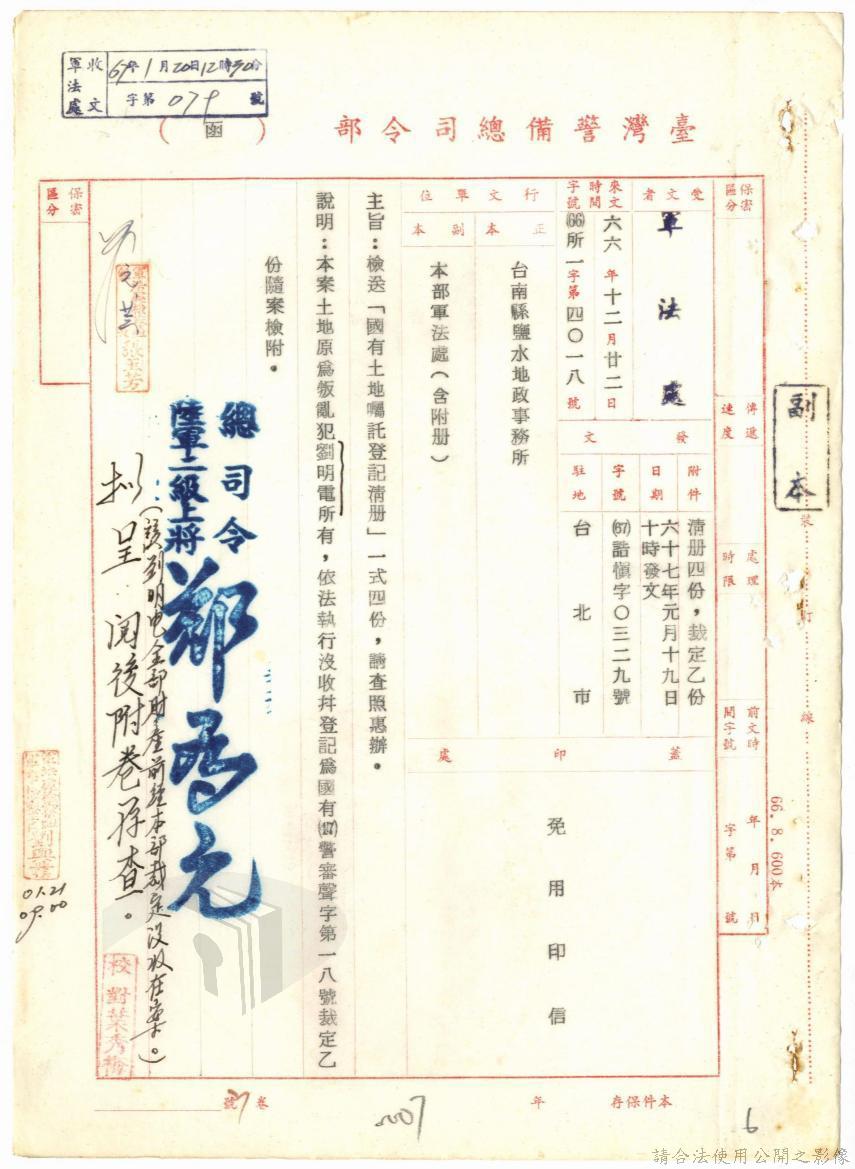 收文
軍法處
67年1月20日12時30分
字第079號
臺灣警備總司令部
（函）
副本
保密區分
受文者
軍法處
來文時間字號
六六年十二月廿二日
(66)所一字第四〇一八號
行文單位
正本
台南縣鹽水地政事務所
副本
本部軍法處（含附册）
發文
附件
清册四份，裁定乙份
日期
六十七年元月十九日
十時發文
字號
(67)誥愼字〇三二九號
駐地
台北市
蓋印處
免用印信
傳遞速度
處理時限
前文時間字號
年月日
字第號
裝訂線
66.8.600本
保密區分
主旨：檢送「國有土地囑託登記清册」一式四份，請查照惠辦。
說明：本案土地原為叛亂犯劉明電所有，依法執行沒收幷登記為國有(47)警審聲字第一八號裁定乙
份隨案檢附。
總司令
陸軍二級上將
鄭為元
（該劉明电全部財產前經本部裁定沒收在案。）
拟呈閱後附卷存查。
01.21
09.00
校對葉秀
本件保存年
卷號
6
請合法使用公開之影像